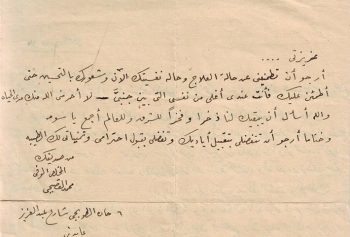 عزيزتى ....
أرجو أن تطمئنينى عن حالة العلاج وحالة نفسيتك الآن وشعورك بالتحسين حتى
أطمئن عليك فأنت عندى أغلى من نفسى التى بين جنبىّ — لا أحرمنى الله منك مدى الحياة
والله أسأل أن يبقيك لنا ذخرا وفخراً للشرق وللعالم أجمع يا سومه
وختاما أرجو أن تتفضلى بتقبيل أياديك وتفضلى بقبول احترامى وتمنياتى لك الطيبة
من صديقك
المخلص الوفى
محمد القصبجى
٦ حارة شارع عبد العزيز
عابدين